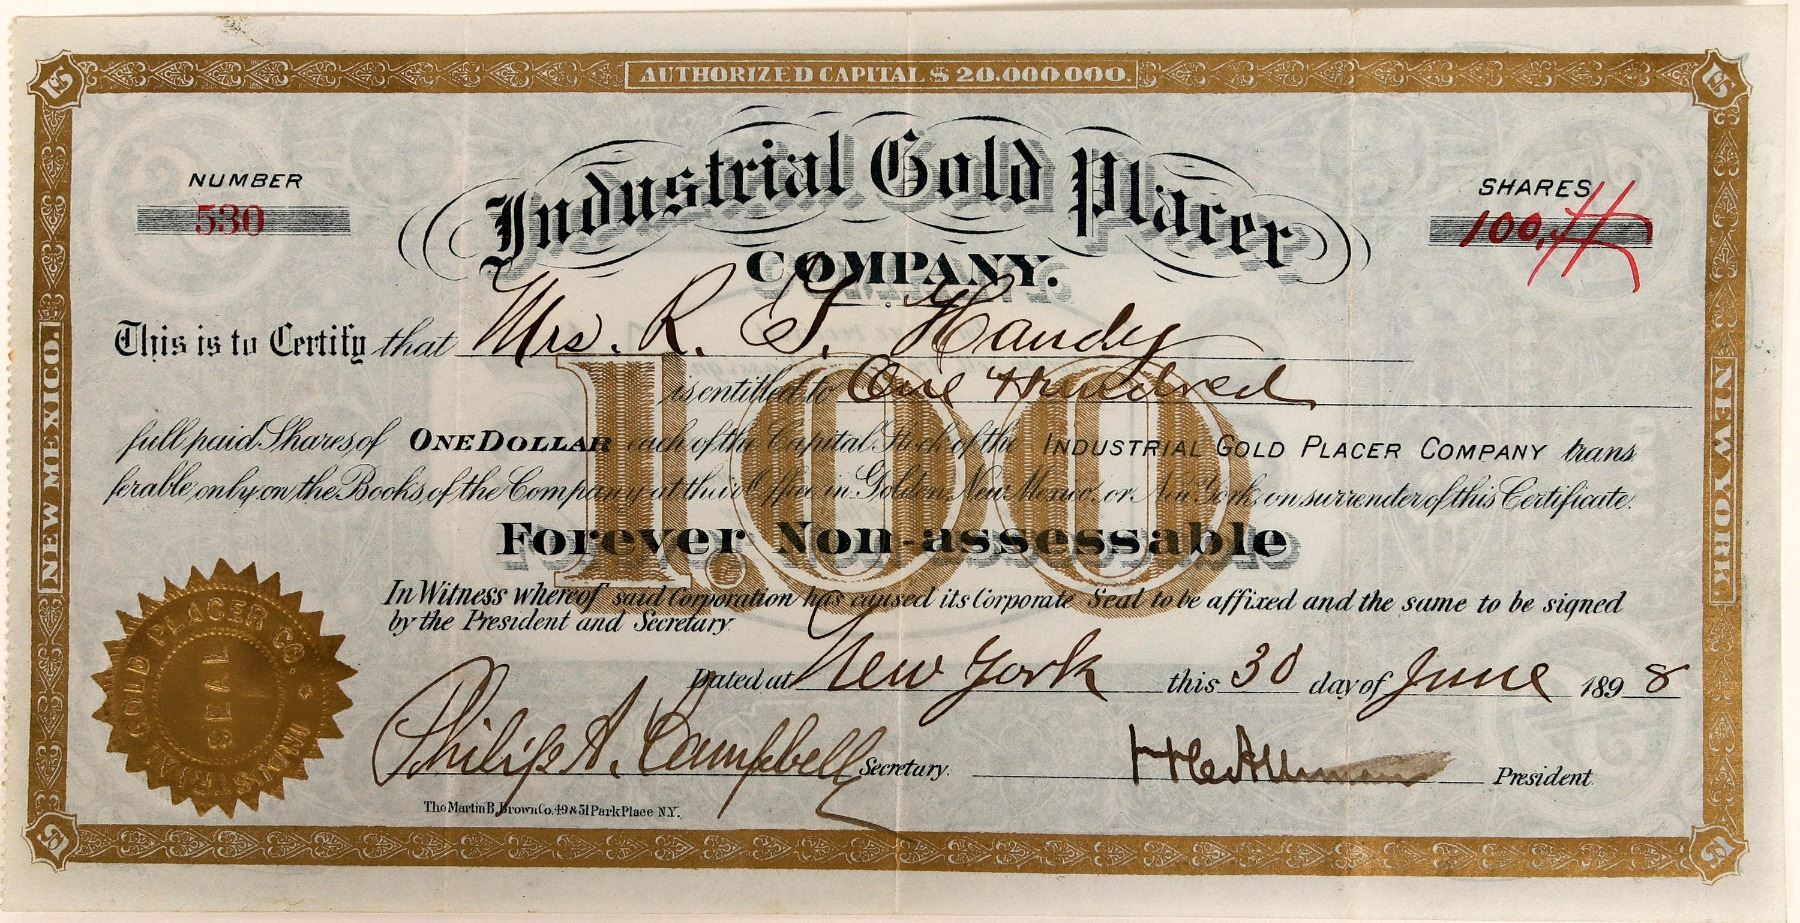 AUTHORIZED CAPITAL $20.000000.
NUMBER
530
Industrial Gold Placer
COMPANY.
SHARES
100.
This is to Certify that Mrs. R. S. Handy
is entitled to One Hundred
full paid Shares of ONE DOLLAR each of the Capital Stock of the INDUSTRIAL GOLD PLACER COMPANY trans
ferable only on the Books of the Company at their Office in Golden New Mexico, or New York, on surrender of this Certificate.
1.00
Forever Non-assessable
In Witness whereof said Corporation has caused its Corporate Seal to be affixed and the same to be signed
by the President and Secretary
Dated at New York this 30 day of June 1898
Philip A. Campbell Secretary.
President
The Martin B. Brown Co. 49 & 51 Park Place N.Y.
NEW MEXICO.
NEW YORK.
INDUSTRIAL GOLD PLACER CO.
SEAL